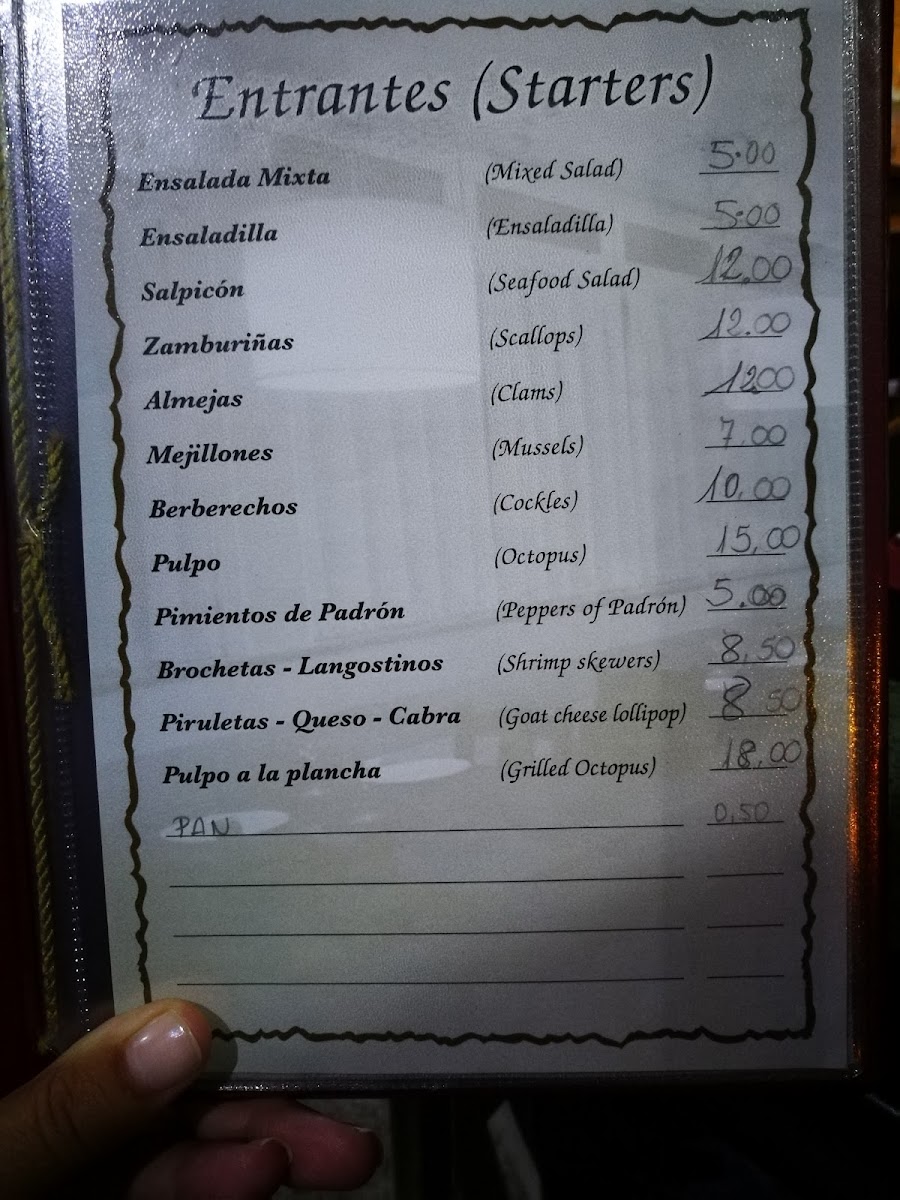 Entrantes (Starters)
Ensalada Mixta (Mixed Salad) 5.00
Ensaladilla (Ensaladilla) 5.00
Salpicón (Seafood Salad) 12.00
Zamburiñas (Scallops) 12.00
Almejas (Clams) 12.00
Mejillones (Mussels) 7.00
Berberechos (Cockles) 10,00
Pulpo (Octopus) 15,00
Pimientos de Padrón (Peppers of Padrón) 5.00
Brochetas - Langostinos (Shrimp skewers) 8,50
Piruletas - Queso - Cabra (Goat cheese lollipop) 8 50
Pulpo a la plancha (Grilled Octopus) 18,00
PAN 0,50